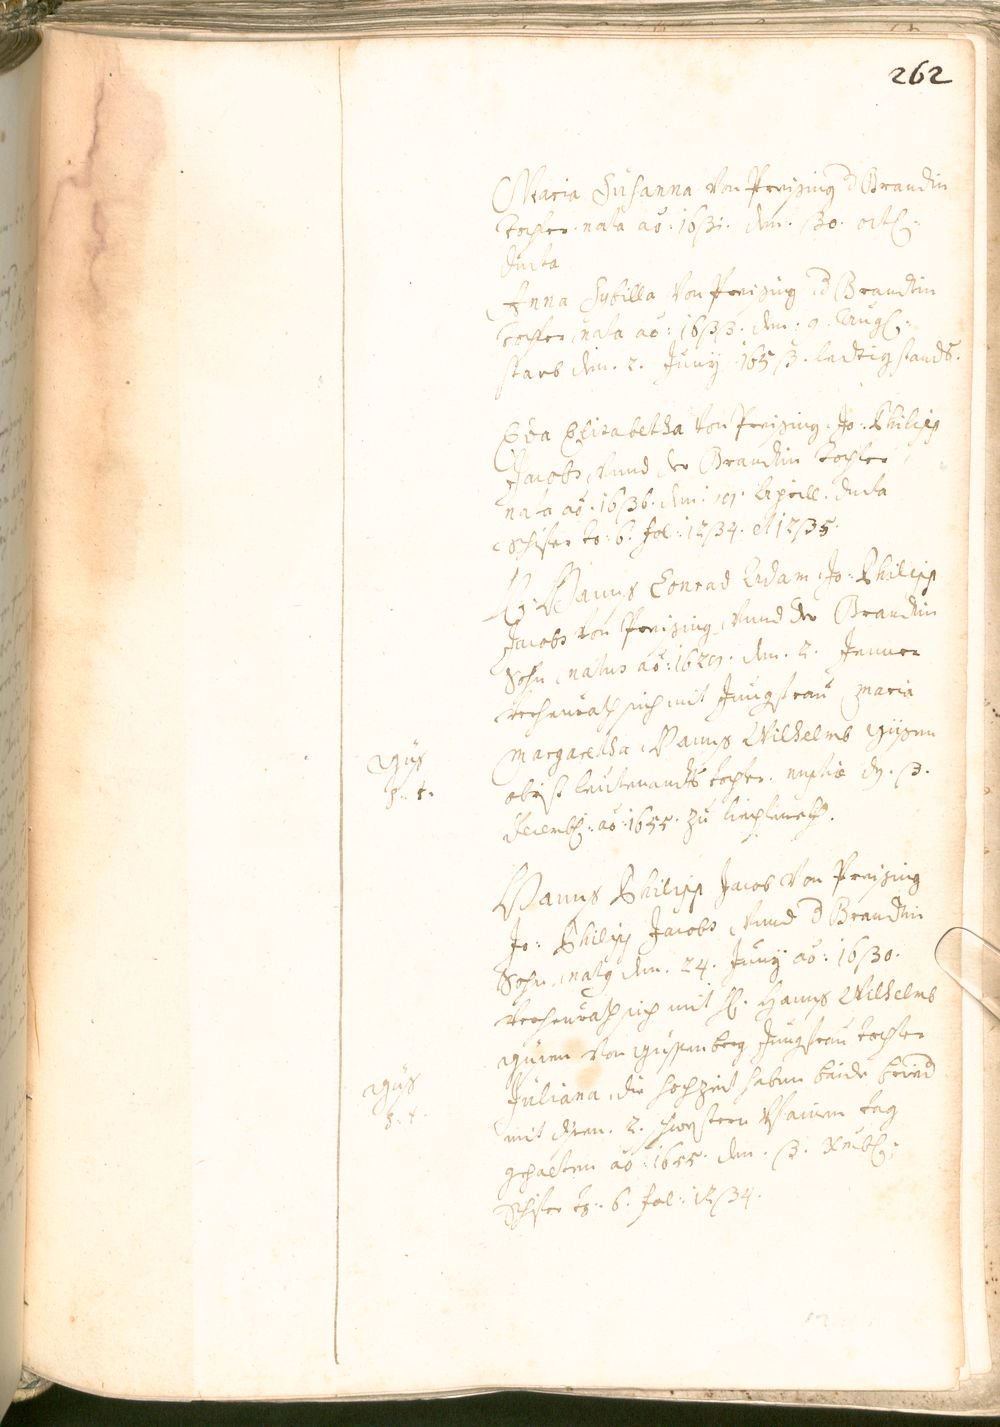 262
Maria Susanna von Preising d Brandin
tochter nata ao: 1631. den. 30. octb:
ducta
Anna Sybilla von Preising d Brandtin
tochter nata ao: 1633. den: 9. Aug:
starb den. 2. Juny 1653. ledtig stands.
Eva Elisabetha von Preising Jo: Philipp
Jacobs vnnd der Brandtin tochter
nata ao. 1636. den: 19. Aprill. ducta
to: 6. fol: 1234. et 1235.
H: Hanns Conrad Adam Jo: Philipp
Jacobs von Preising vnnd der Brandtin
Sohn natus ao: 1629. den. 2. Jenner
verheurath sich mit Jungfrau Maria
Margaretha Hanns Wilhelmb
obrist leutenandts tochter. nuptiæ d. 3.
decembr: ao: 1655. zu
Hanns Philipp Jacob von Preising
Jo: Philipp Jacobs vnnd d Brandtin
Sohn natus den. 24. Juny ao: 1630.
verheurath sich mit H. Hanns Wilhelmb
von Jungfrau tochter
Juliana, die hochzeit haben beide brüed
mit disen. 2. schwestern tag
gehalten ao: 1655. den. 3. Xmb:
to: 6. fol: 1234.